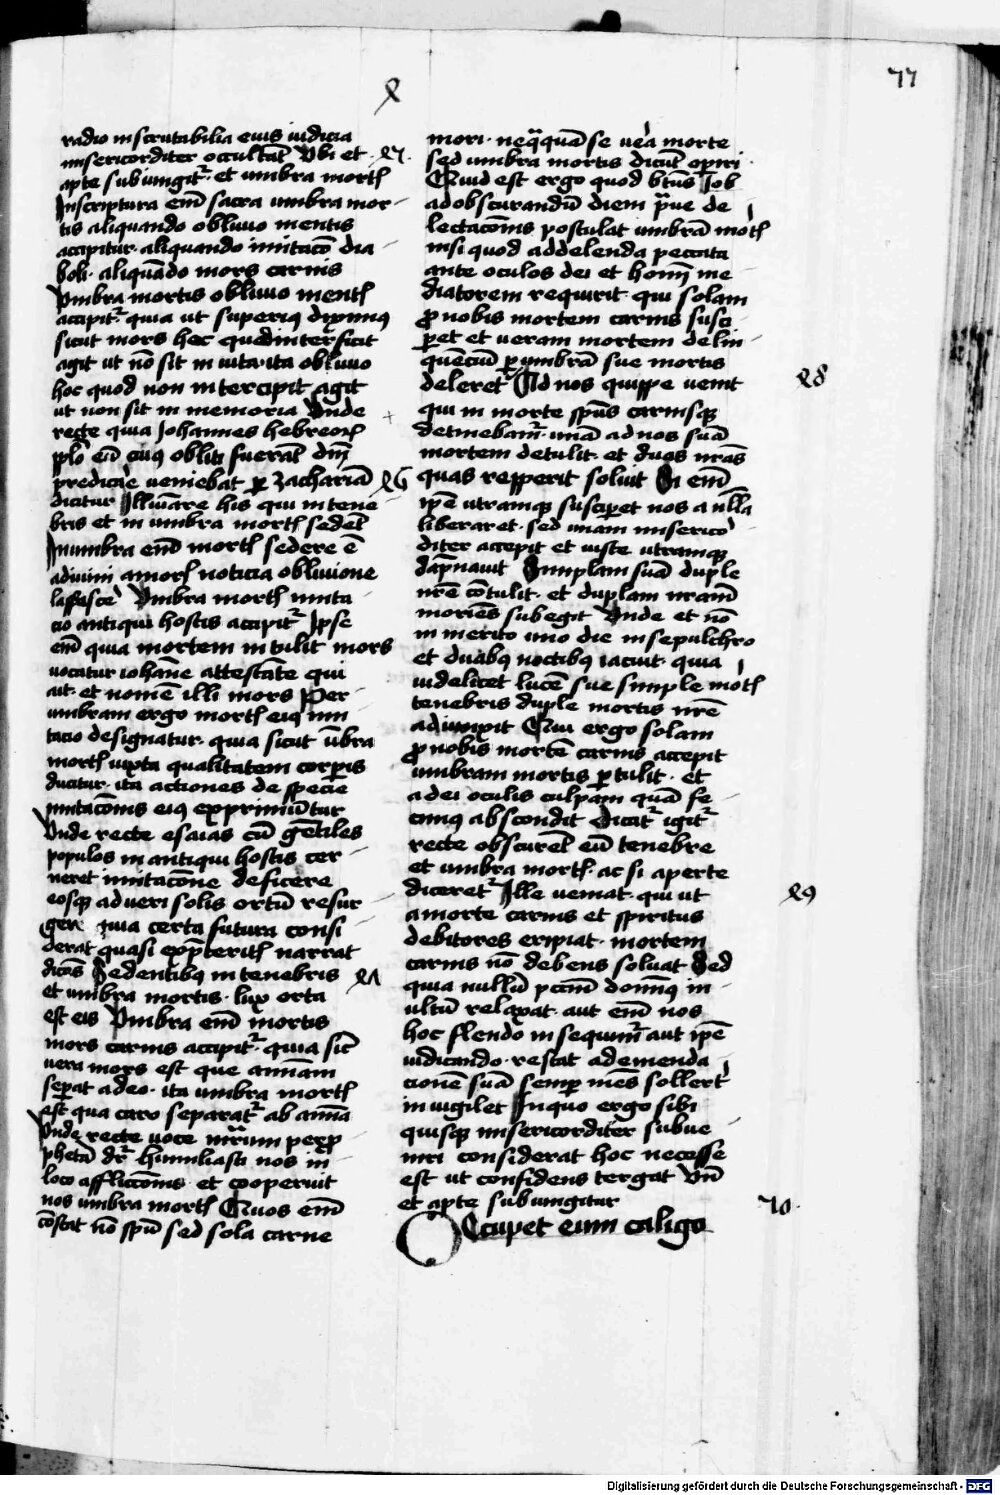 77
radio inscrutabilia eius iudicia
misericorditer occultat̄ Vbi et
apte subiungit᷑ et umbra mortꝭ
Inscriptura em̄ sacra umbra mor
tis aliquando obliuio mentis
accipitur· aliquando imitacō dia
boli· aliquādo mors carnis
Vmbra mortis obliuio mentꝭ
accipit᷑ quia ut superiꝰ diximus
sicut mors hoc quod interficit
agit ut nō sit in uita· ita obliuio
hoc quod non intercipit agit
ut non sit in memoria Vnde
recte quia Johannes hebreoꝝ
pplo eū cuiꝰ obliti fuerāt dm̄
predicare ueniebat ꝑ Zachariā
dicitur Illuīare his qui in tene
bris et in umbra mortꝭ sedēt
Inumbra em̄ mortꝭ sedere ē
adiuini amorꝭ noticia obliuione
lassesce᷑ Vmbra mortꝭ imita
cio antiqui hostis accipit᷑ Ipse
em̄ quia mortem intulit mors
uocatur iohāne attestāte qui
ait· et nomē illi mors Per
umbram ergo mortꝭ eiꝰ imi
tacio designatur· quia sicut ūbra
mortꝭ iuxta qualitatem corꝑis
ducitur· ita actiones de specie
imitacōnis eiꝰ exprimūtur
Vnde recte esaias cū gētiles
populos in antiqui hostis cer
neret imitacōne deficere
eosqꝫ ad ueri solis ortū resur
gere quia certa futura consi
derat quasi exp̄teritꝭ narrat
dicēs Sedentibꝰ in tenebris
et umbra mortis· lux orta
est eis Vmbra em̄ mortis
mors carnis accipit᷑· quia sic̄
uera mors est que animam
seꝑat adeo· ita umbra mortꝭ
est qua caro separat᷑ ab aīma
Vnde recte uoce mr̄ium per ꝓ
phetā dr̄ humiliasti nos in
loco affliccōnis et cooperuit
nos umbra mortꝭ Quos em̄
cōstat nō spū sed sola carne
mori· neqꝗquā se uera morte
sed umbra mortis dicūt operiri
Quid est ergo quod btūs Job
ad obscurandū diem praue de
lectacōnis postulat umbrā mortꝭ
nisi quod ad delenda peccata
ante oculos dei et homī me
diatorem requirit· qui solam
ꝓ nobis mortem carnis susci
ꝑet et ueram mortem delin
quēciū ꝑ umbrā sue mortis
deleret᷑ Ad nos quippe uenit
qui in morte spūs carnisqꝫ
detinebam᷑· unā ad nos suā
mortem detulit· et duas nr̄as
quas repperit soluit Si em̄
ipē utramqꝫ susciꝑet nos a nulla
liberaret· sed unam miserico
diter accepit et iuste utramqꝫ
dāpnauit Simplam suā duple
nr̄e cōtulit· et duplam nr̄am
moriēs subegit Vnde et nō
in merito uno die in sepulchro
et duabꝰ noctibꝰ iacuit· quia
uidelicet lucē sue simple mortꝭ
tenebris duple mortis nr̄e
adiunxit Qui ergo solam
ꝓ nobis mortē carnis accepit
umbram mortis ꝑtulit· et
a dei oculis culpam quā fe
cimꝰ abscondit Dicat᷑ igit᷑
recte obscurēt eū tenebre
et umbra mortꝭ· ac si aperte
diceret᷑ Ille ueniat· qui ut
a morte carnis et spiritus
debitores eripiat· mortem
carnis nō debens soluat Sed
quia nullū pccm̄ domīꝰ in
ultū relaxat· aut em̄ nos
hoc flendo insequim᷑ aut ipē
iudicando· restat ad emenda
cionē suā semꝑ mēs sollert᷑
inuigilet Inquo ergo sibi
quisqꝫ misericorditer subue
niri considerat hoc necesse
est ut confidens tergat Vn̄
et apte subiungitur
Occupet eum caligo
Digitalisierung gefördert durch die Deutsche Forschungsgemeinschaft - DFG